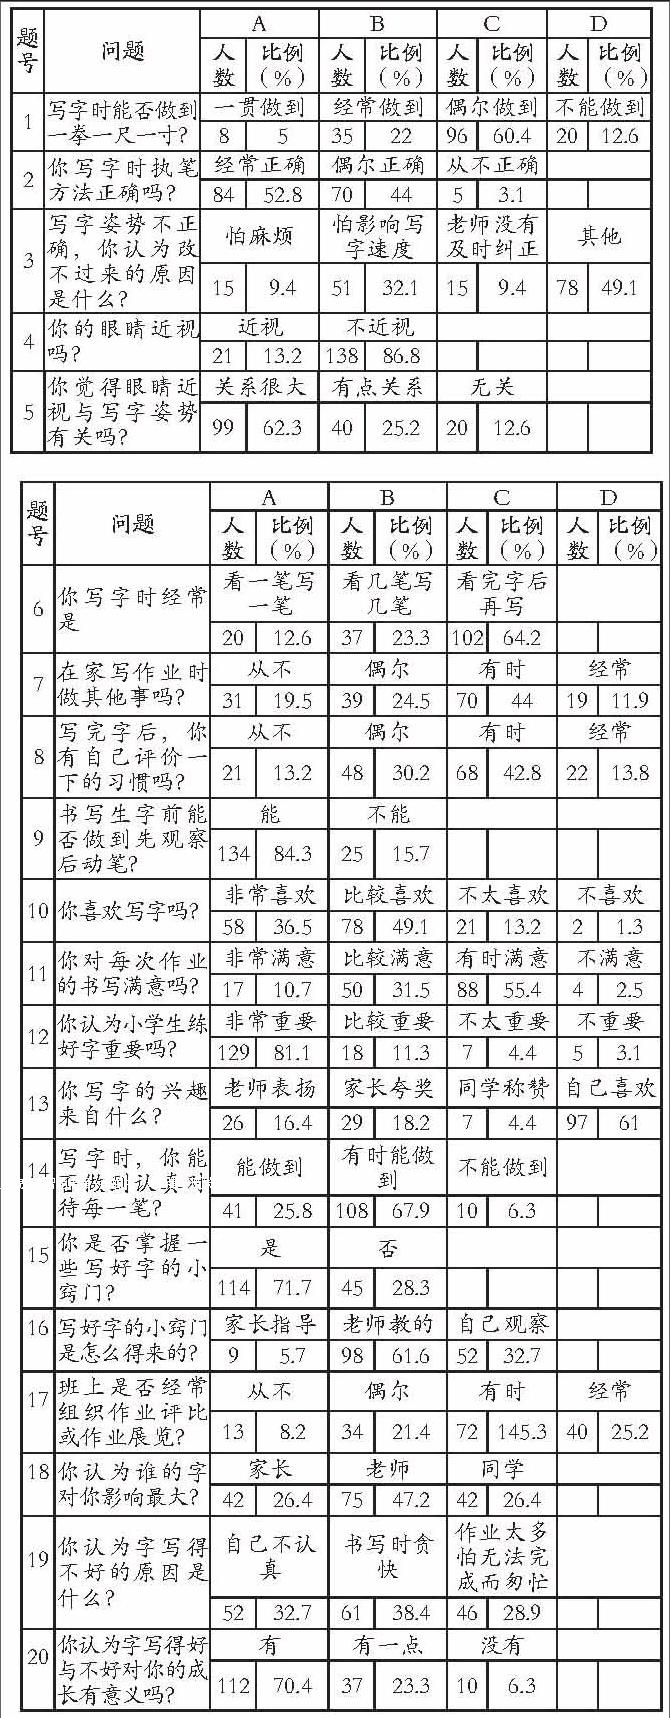 题号 问题 A B C D
人数 比例(%) 人数 比例(%) 人数 比例(%) 人数 比例(%)
1 写字时能否做到一拳一尺一寸? 一贯做到 经常做到 偶尔做到 不能做到
8 5 35 22 96 60.4 20 12.6
2 你写字时执笔方法正确吗? 经常正确 偶尔正确 从不正确
84 52.8 70 44 5 3.1
3 写字姿势不正确，你认为改不过来的原因是什么? 怕麻烦 怕影响写字速度 老师没有及时纠正 其他
15 9.4 51 32.1 15 9.4 78 49.1
4 你的眼睛近视吗? 近视 不近视
21 13.2 138 86.8
5 你觉得眼睛近视与写字姿势有关吗? 关系很大 有点关系 无关
99 62.3 40 25.2 20 12.6
题号 问题 A B C D
人数 比例(%) 人数 比例(%) 人数 比例(%) 人数 比例(%)
6 你写字时经常是 看一笔写一笔 看几笔写几笔 看完字后再写
20 12.6 37 23.3 102 64.2
7 在家写作业时做其他事吗? 从不 偶尔 有时 经常
31 19.5 39 24.5 70 44 19 11.9
8 写完字后，你有自己评价一下的习惯吗? 从不 偶尔 有时 经常
21 13.2 48 30.2 68 42.8 22 13.8
9 书写生字前能否做到先观察后动笔? 能 不能
134 84.3 25 15.7
10 你喜欢写字吗? 非常喜欢 比较喜欢 不太喜欢 不喜欢
58 36.5 78 49.1 21 13.2 2 1.3
11 你对每次作业的书写满意吗? 非常满意 比较满意 有时满意 不满意
17 10.7 50 31.5 88 55.4 4 2.5
12 你认为小学生练好字重要吗? 非常重要 比较重要 不太重要 不重要
129 81.1 18 11.3 7 4.4 5 3.1
13 你写字的兴趣来自什么? 老师表扬 家长夸奖 同学称赞 自己喜欢
26 16.4 29 18.2 7 4.4 97 61
14 写字时，你能否做到认真对待每一笔? 能做到 有时能做到 不能做到
41 25.8 108 67.9 10 6.3
15 你是否掌握一些写好字的小窍门? 是 否
114 71.7 45 28.3
16 写好字的小窍门是怎么得来的? 家长指导 老师教的 自己观察
9 5.7 98 61.6 52 32.7
17 班上是否经常组织作业评比或作业展览? 从不 偶尔 有时 经常
13 8.2 34 21.4 72 145.3 40 25.2
18 你认为谁的字对你影响最大? 家长 老师 同学
42 26.4 75 47.2 42 26.4
19 你认为字写得不好的原因是什么? 自己不认真 书写时贪快 作业太多怕无法完成而匆忙
52 32.7 61 38.4 46 28.9
20 你认为字写得好与不好对你的成长有意义吗? 有 有一点 没有
112 70.4 37 23.3 10 6.3